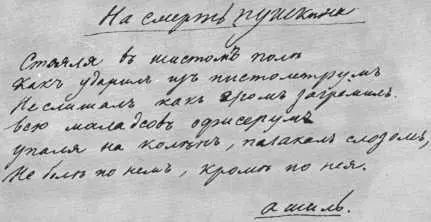 На смерть пушкина
Стояля в шистомъ поля
Какъ ударилъ изъ пистолетрумъ
Не слишалъ какъ громъ загремилъ.
всю маладсовъ офисерумъ
упаля на колѣнъ, палакалъ слозомъ,
Не боль по немъ, кромь по нея.
ашиль.